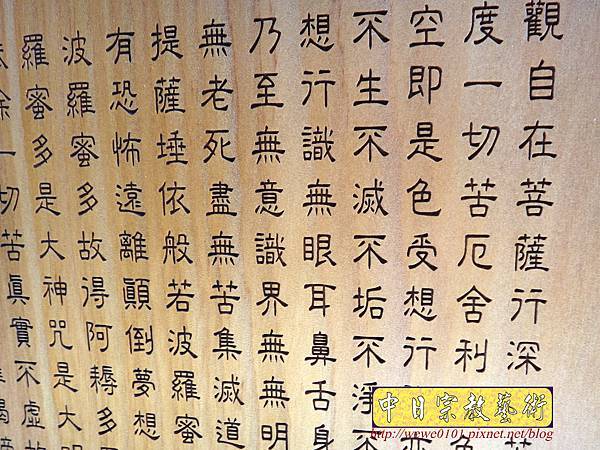 觀自在菩薩行深
度一切苦厄舍利
空即是色受想行
不生不滅不垢不淨不
想行識無眼耳鼻舌身
乃至無意識界無無明
無老死盡無苦集滅道
提薩埵依般若波羅蜜
有恐怖遠離顛倒夢想
波羅蜜多故得阿耨多
羅蜜多是大神咒是大明
除一切苦真實不虛故
中日宗教藝術
http://wewe0101.pixnet.net/blog